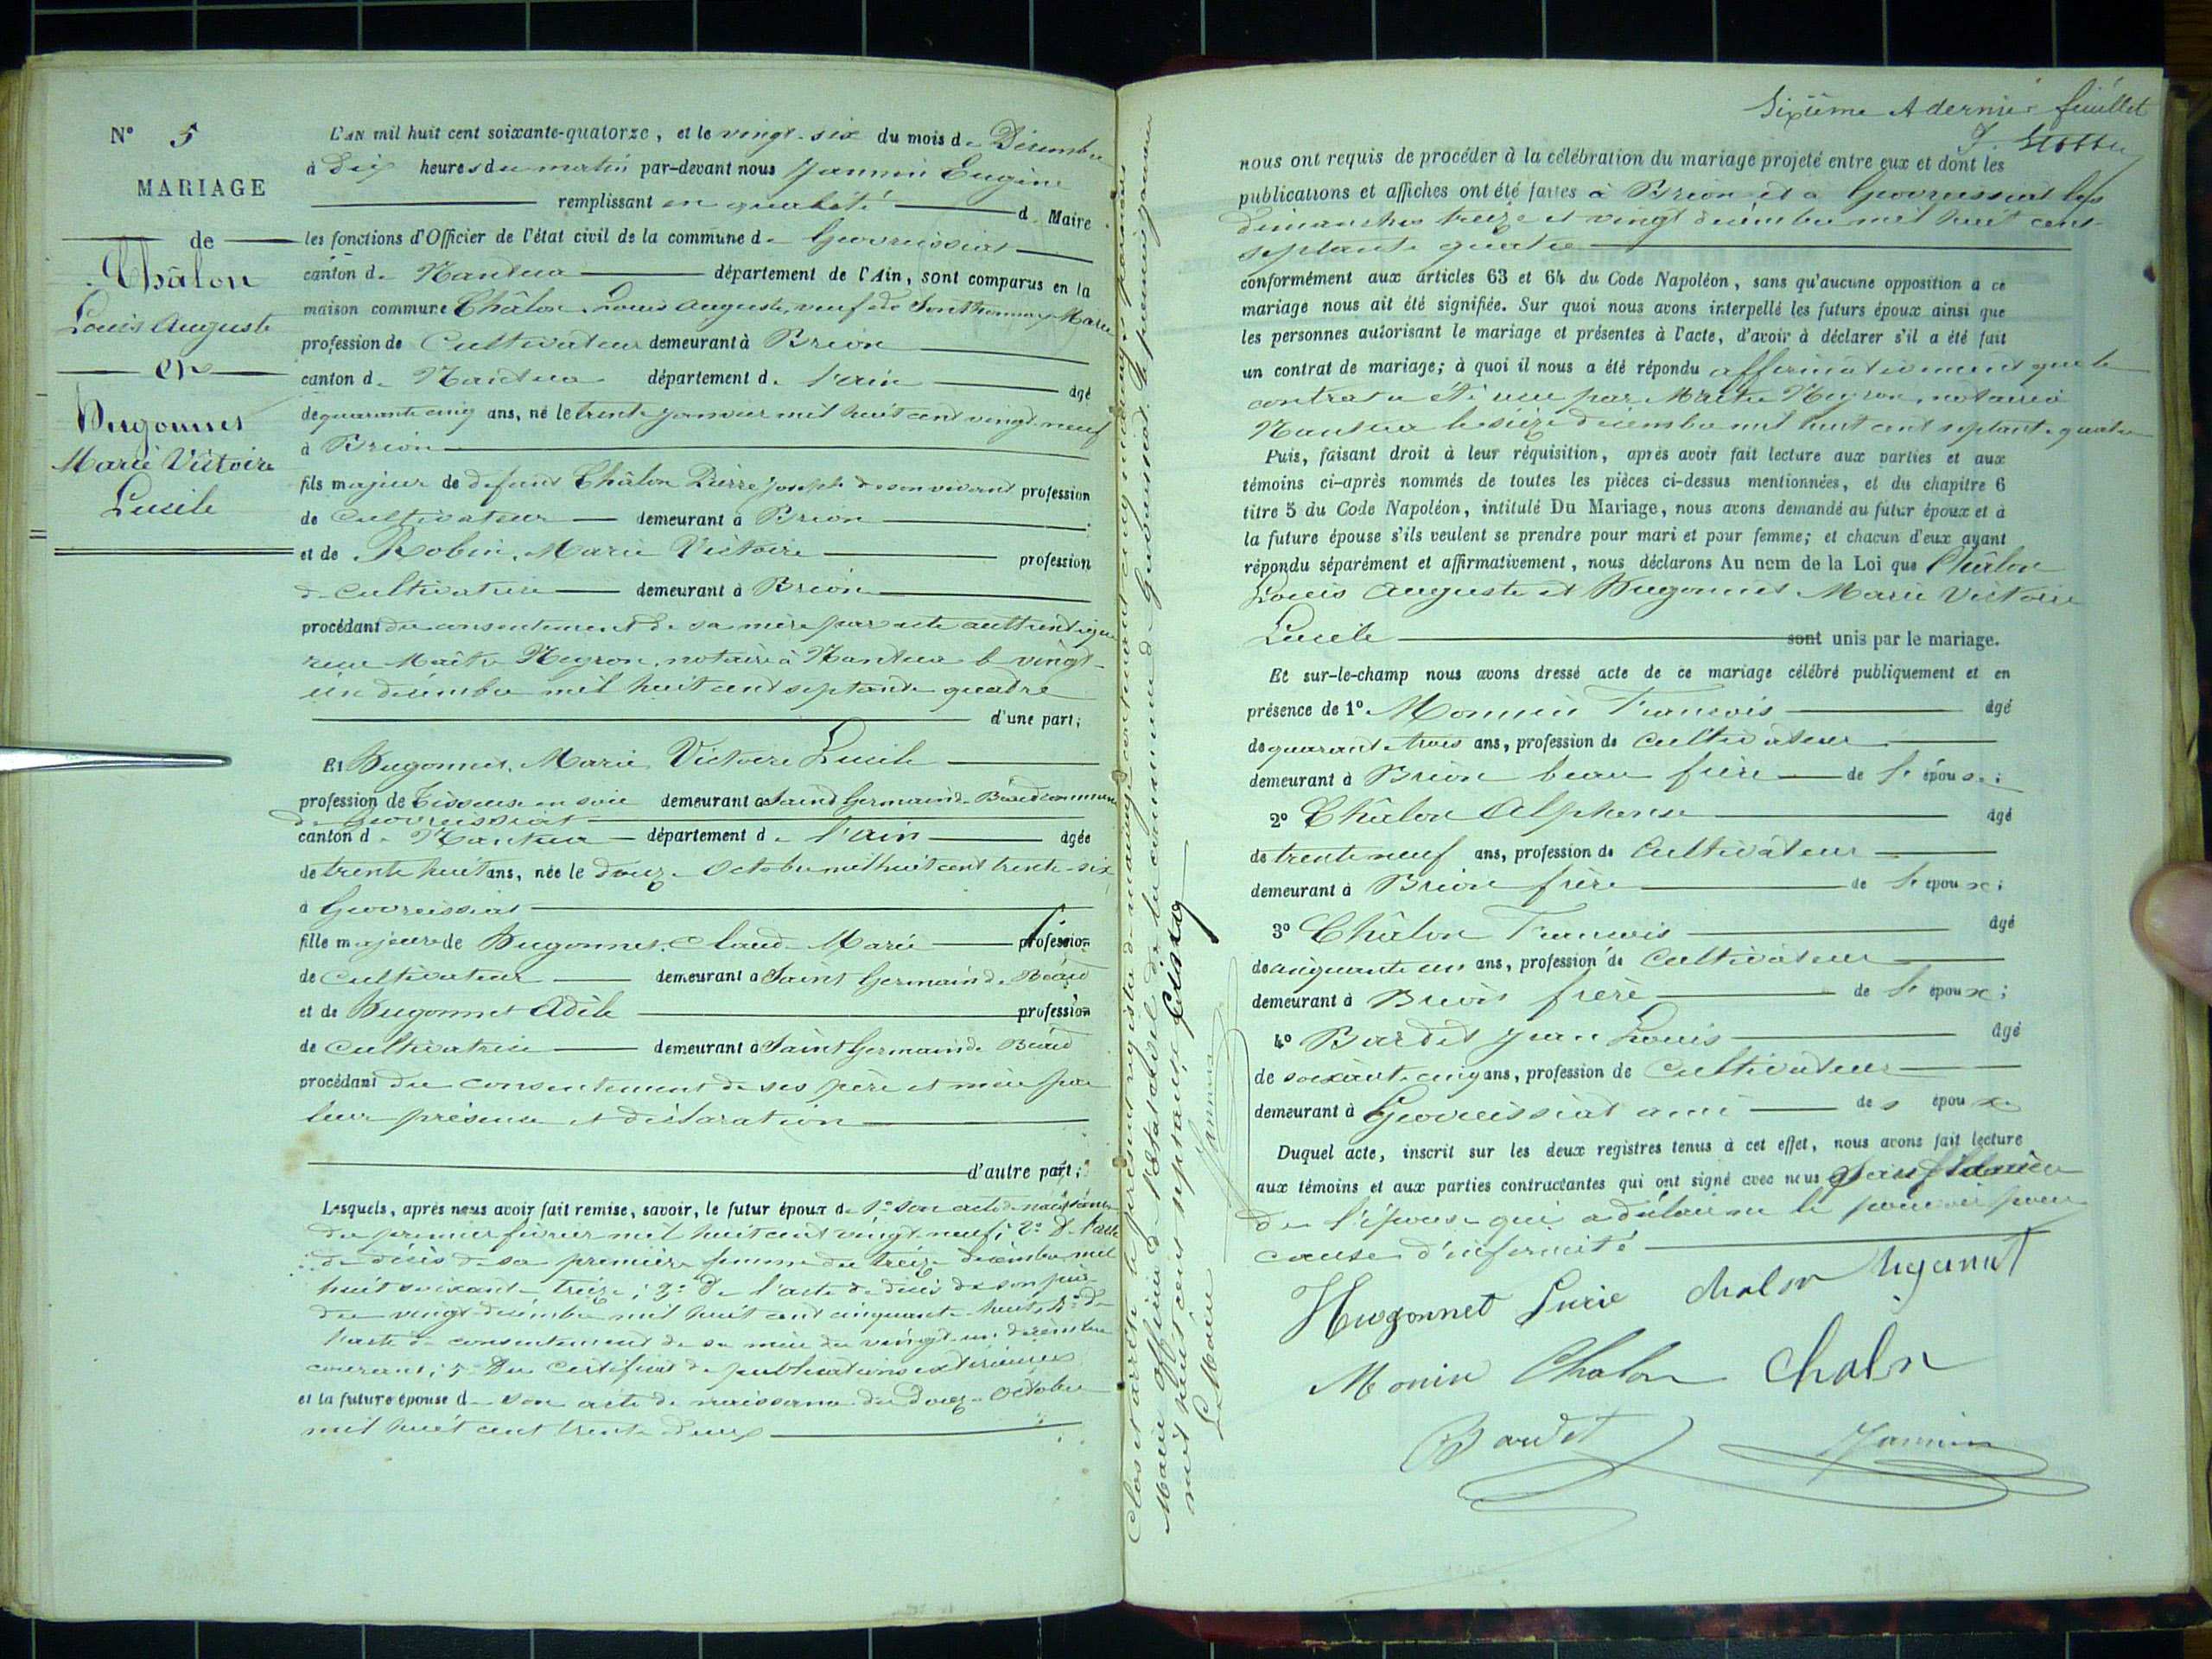 N° 5
MARIAGE
de
Châlon
Louis Auguste
et
Hugonnet
Marie Victoire
Lucile
L'AN mil huit cent soixante-quatorze, et le vingt-six du mois de Décembre
à dix heures du matin par-devant nous Jannin Eugène
remplissant en qualité de Maire
les fonctions d'Officier de l'état civil de la commune de Géovreissiat
canton de Nantua département de l'Ain, sont comparus en la
maison commune Châlon Louis Auguste, veuf de Sonthonnax Marie
profession de Cultivateur demeurant à Brion
canton de Nantua département de l'ain âgé
de quarante cinq ans, né le trente janvier mil huit cent vingt neuf
à Brion
fils majeur de défunt Châlon Pierre Joseph de son vivant profession
de Cultivateur demeurant à Brion
et de Robin, Marie Victoire profession
de Cultivatrice demeurant à Brion
procédant du consentement de sa mère par acte authentique
reçu Maître Neyron, notaire à Nantua le vingt-
un décembre mil huit cent septante quatre
d'une part;
Et Hugonnet, Marie Victoire Lucile
profession de Tisseuse en soie demeurant à Saint Germain de Béard commune
de Géovreissiat
canton de Nantua département de l'ain âgée
de trente huit ans, née le douze Octobre mil huit cent trente-six
à Géovreissiat
fille majeure de Hugonnet, Claude Marie profession
de Cultivateur demeurant à Saint Germain de Béard
et de Hugonnet Adèle profession
de Cultivatrice demeurant à Saint Germain de Béard
procédant du consentement de ses père et mère par
leur présence et déclaration
d'autre part;
Lesquels, après nous avoir fait remise, savoir, le futur époux de 1° son acte de naissance
du premier février mil huit cent vingt neuf; 2° De l'acte
de décès de sa première femme du treize décembre mil
huit soixante treize; 3° De l'acte de décès de son père
du vingt décembre mil huit cent cinquante huit, 4° De
l'acte de consentement de sa mère du vingt-un décembre
courant; 5° Du Certificat de publications extérieures
et la future épouse de son acte de naissance du douze Octobre
mil huit cent trente deux
Clos et arrêté le présent registre de mariage contenant cinq mariages par nous
Maire Officier de l'état civil de la commune de Géovreissiat le premier janvier
mil huit cent septante cinq
Le Maire
Jannin
Sixième & dernier feuillet
nous ont requis de procéder à la célébration du mariage projeté entre eux et dont les
publications et affiches ont été faites à Brion et à Géovreissiat les
dimanches treize et vingt décembre mil huit cent
septante quatre
conformément aux articles 63 et 64 du Code Napoléon, sans qu'aucune opposition à ce
mariage nous ait été signifiée. Sur quoi nous avons interpellé les futurs époux ainsi que
les personnes autorisant le mariage et présentes à l'acte, d'avoir à déclarer s'il a été fait
un contrat de mariage; à quoi il nous a été répondu affirmativement que le
contrat a été reçu par Maître Neyron, notaire à
Nantua le seize décembre mil huit cent septante quatre
Puis, faisant droit à leur réquisition, après avoir fait lecture aux parties et aux
témoins ci-après nommés de toutes les pièces ci-dessus mentionnées, et du chapitre 6
titre 5 du Code Napoléon, intitulé Du Mariage, nous avons demandé au futur époux et à
la future épouse s'ils veulent se prendre pour mari et pour femme; et chacun d'eux ayant
répondu séparément et affirmativement, nous déclarons Au nom de la Loi que Châlon
Louis Auguste et Hugonnet Marie Victoire
Lucile sont unis par le mariage.
Et sur-le-champ nous avons dressé acte de ce mariage célébré publiquement et en
présence de 1° Monnin François âgé
de quarante trois ans, profession de Cultivateur
demeurant à Brion beau frère de l'épouse;
2° Châlon Alphonse âgé
de trente neuf ans, profession de Cultivateur
demeurant à Brion frère de l'époux;
3° Châlon François âgé
de cinquante un ans, profession de Cultivateur
demeurant à Brion frère de l'époux;
4° Bardet Jean Louis âgé
de soixante cinq ans, profession de Cultivateur
demeurant à Géovreissiat ami des époux
Duquel acte, inscrit sur les deux registres tenus à cet effet, nous avons fait lecture
aux témoins et aux parties contractantes qui ont signé avec nous sauf la mère
de l'épouse qui a déclaré ne le pouvoir pour
cause d'infirmité
Hugonnet Lucie Chalon Hugonnet
Monin Chalon Chalon
Bardet Jannin